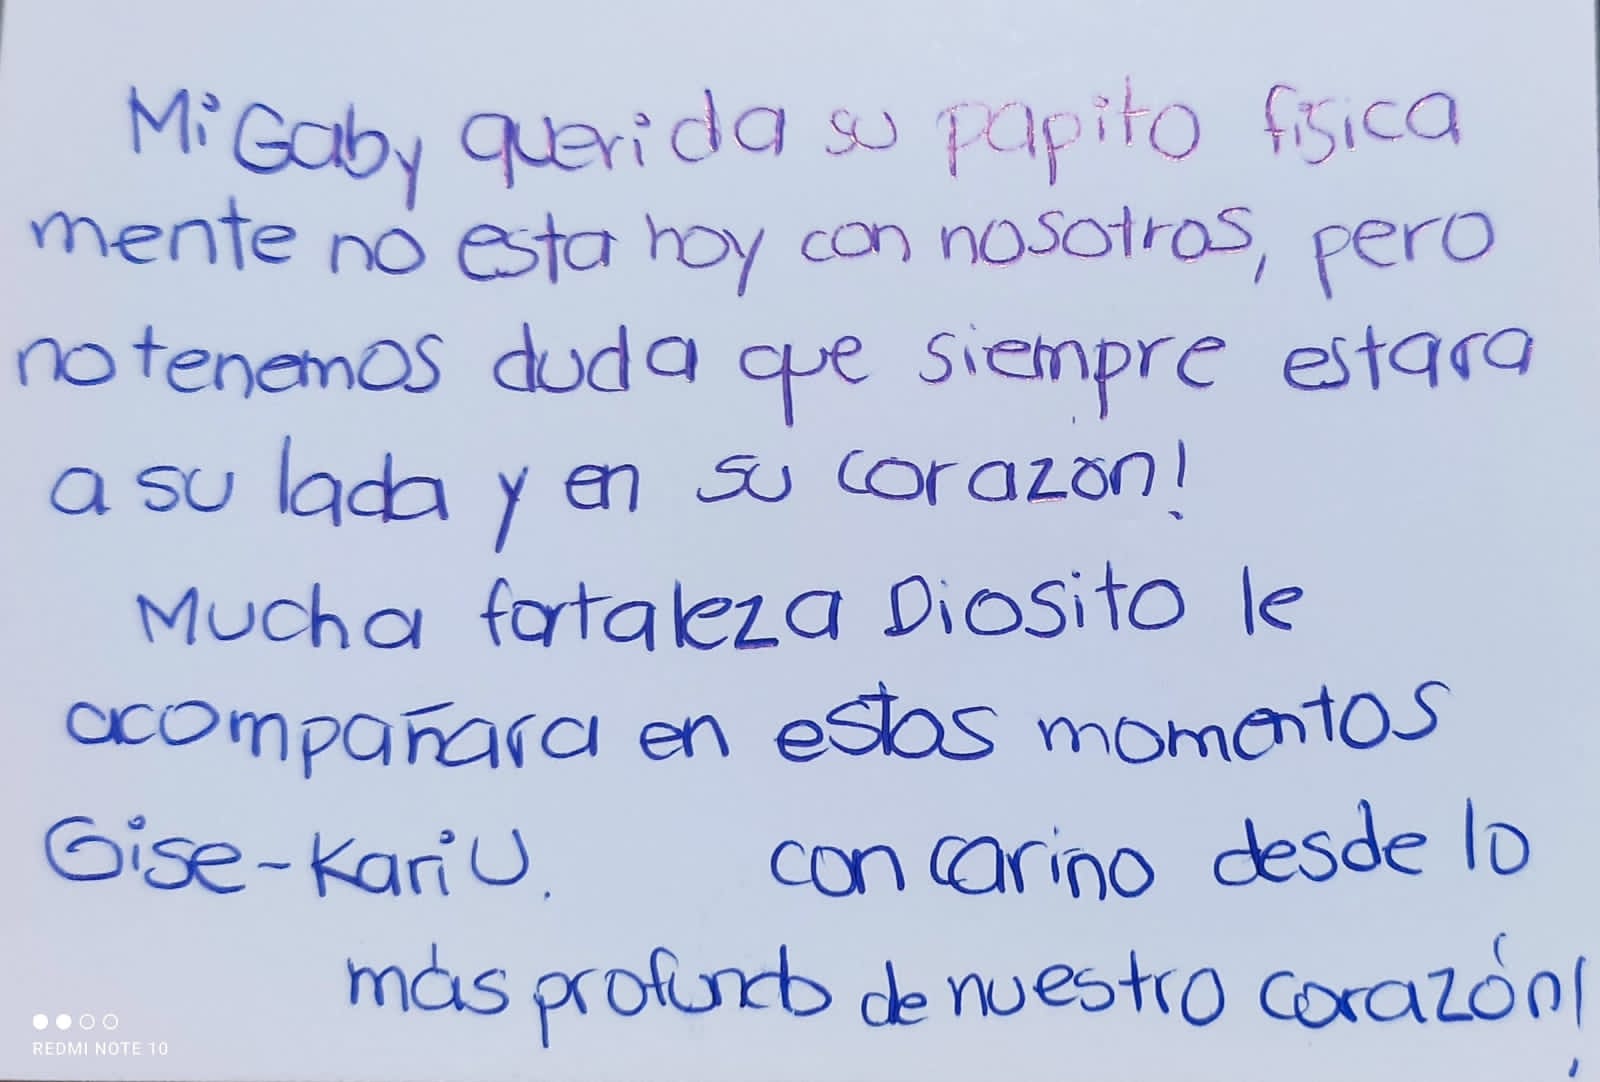 Mi Gaby querida su papito fisica
mente no esta hoy con nosotros, pero
no tenemos duda que siempre estara
a su lada y en su corazón!
Mucha fortaleza Diosito le
acompañara en estos momentos
Gise-Kari U. con cariño desde lo
más profundo de nuestro corazón!
REDMI NOTE 10